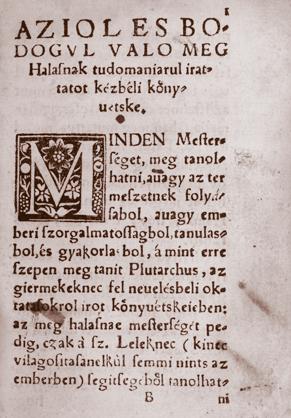 1
AZ IOL ES BO⸗
DOGVL VALO MEG
Halasnak tudomaniarul irat⸗
tatot kézbéli kőny⸗
uetske.
MINDEN Mester⸗
séget, meg tanol⸗
hatni, auagy az ter
meszetnek folyá⸗
sabol, auagy em⸗
beri szorgalmatossagbol, tanulas⸗
bol, és gyakorla⸗bol, a mint erre
szepen meg tanit Plutarchus, az
giermekeknec fel neuelésbeli ok⸗
tatasokrol irot kőnyuetskeieben:
az meg halasnac mesterségét pe⸗
dig, czak á sz. Leleknec ( kinec
vilagositasanelkúl semmi nints az
emberben) segitsegeből tanolhat⸗
B
ni